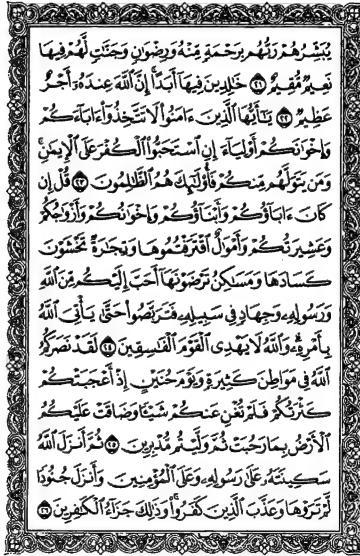 يُبَشِّرُهُمْ رَبُّهُم بِرَحْمَةٍ مِّنْهُ وَرِضْوَانٍ وَجَنَّاتٍ لَّهُمْ فِيهَا
نَعِيمٌ مُّقِيمٌ ٢١ خَالِدِينَ فِيهَا أَبَدًا إِنَّ اللَّهَ عِندَهُ أَجْرٌ
عَظِيمٌ ٢٢ يَا أَيُّهَا الَّذِينَ ءَامَنُوا لَا تَتَّخِذُوا ءَابَاءَكُمْ
وَإِخْوَانَكُمْ أَوْلِيَاءَ إِنِ اسْتَحَبُّوا الْكُفْرَ عَلَى الْإِيمَانِ
وَمَن يَتَوَلَّهُم مِّنكُمْ فَأُولَٰئِكَ هُمُ الظَّالِمُونَ ٢٣ قُلْ إِن
كَانَ ءَابَاؤُكُمْ وَأَبْنَاؤُكُمْ وَإِخْوَانُكُمْ وَأَزْوَاجُكُمْ
وَعَشِيرَتُكُمْ وَأَمْوَالٌ اقْتَرَفْتُمُوهَا وَتِجَارَةٌ تَخْشَوْنَ
كَسَادَهَا وَمَسَاكِنُ تَرْضَوْنَهَا أَحَبَّ إِلَيْكُم مِّنَ اللَّهِ
وَرَسُولِهِ وَجِهَادٍ فِي سَبِيلِهِ فَتَرَبَّصُوا حَتَّىٰ يَأْتِيَ اللَّهُ
بِأَمْرِهِ وَاللَّهُ لَا يَهْدِي الْقَوْمَ الْفَاسِقِينَ ٢٤ لَقَدْ نَصَرَكُمُ
اللَّهُ فِي مَوَاطِنَ كَثِيرَةٍ وَيَوْمَ حُنَيْنٍ إِذْ أَعْجَبَتْكُمْ
كَثْرَتُكُمْ فَلَمْ تُغْنِ عَنكُمْ شَيْئًا وَضَاقَتْ عَلَيْكُمُ
الْأَرْضُ بِمَا رَحُبَتْ ثُمَّ وَلَّيْتُم مُّدْبِرِينَ ٢٥ ثُمَّ أَنزَلَ اللَّهُ
سَكِينَتَهُ عَلَىٰ رَسُولِهِ وَعَلَى الْمُؤْمِنِينَ وَأَنزَلَ جُنُودًا
لَّمْ تَرَوْهَا وَعَذَّبَ الَّذِينَ كَفَرُوا وَذَٰلِكَ جَزَاءُ الْكَافِرِينَ ٢٦